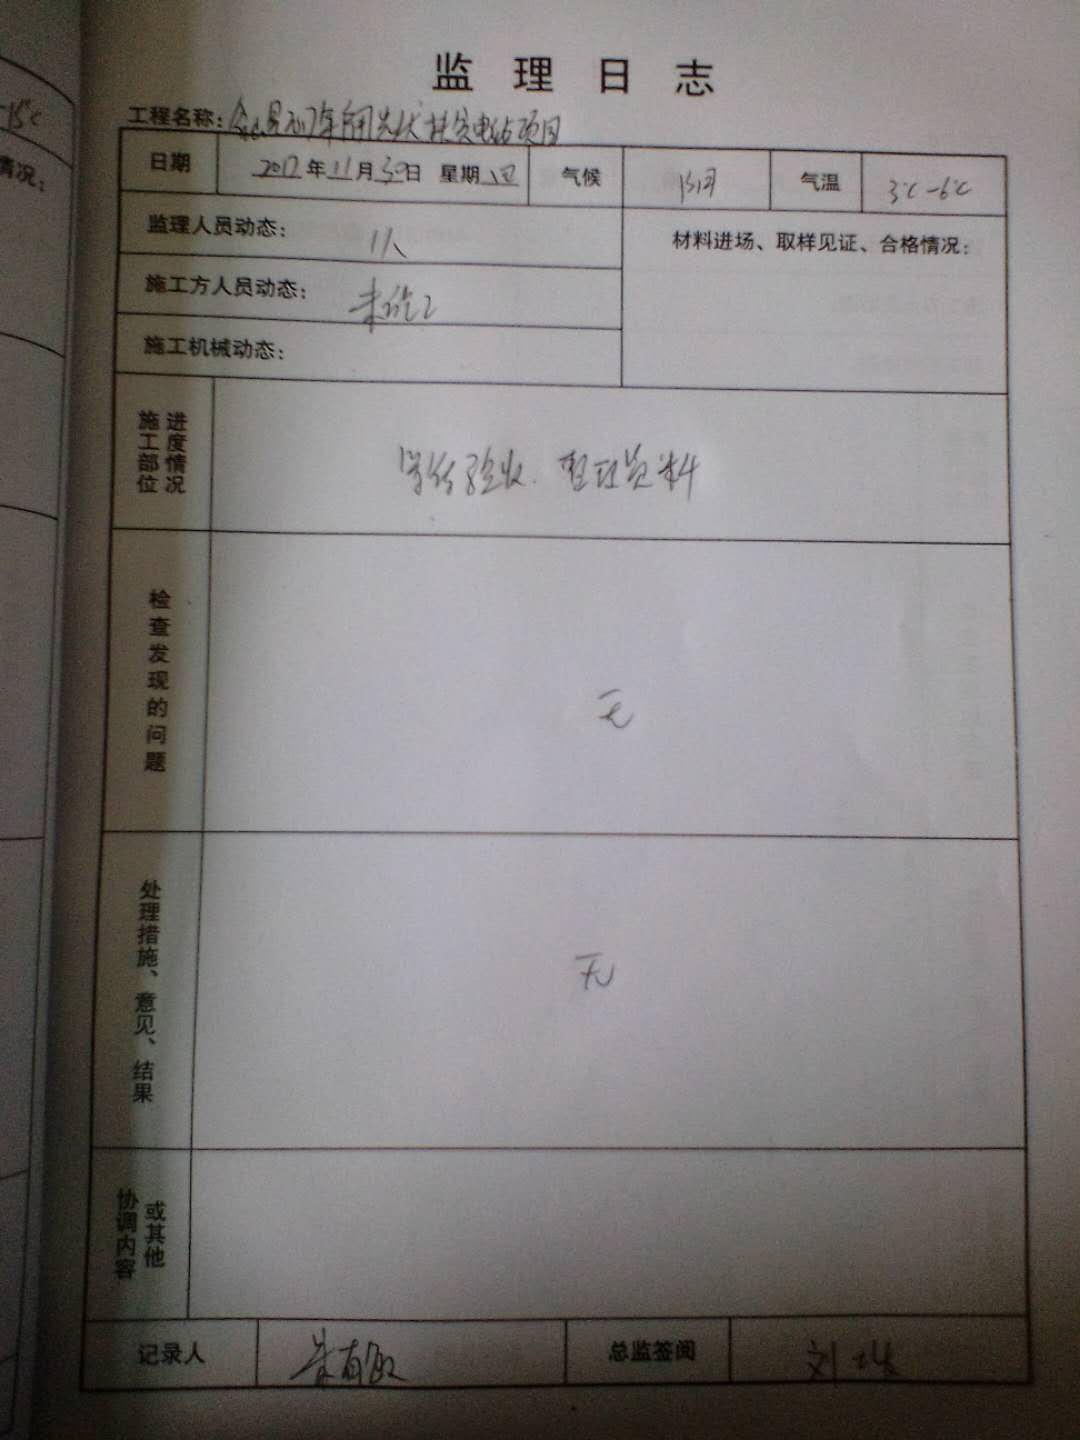 -15℃
情况：
监 理 日 志
工程名称：县2017年 光伏扶贫电站项目
日期 2017年11月30日 星期四 气候 阴 气温 3℃-6℃
监理人员动态： 1人
材料进场、取样见证、合格情况：
施工方人员动态： 未施工
施工机械动态：
施工部位
进度情况
等待验收. 整理资料
检查发现的问题
无
处理措施、意见、结果
无
协调内容
或其他
记录人 总监签阅 刘